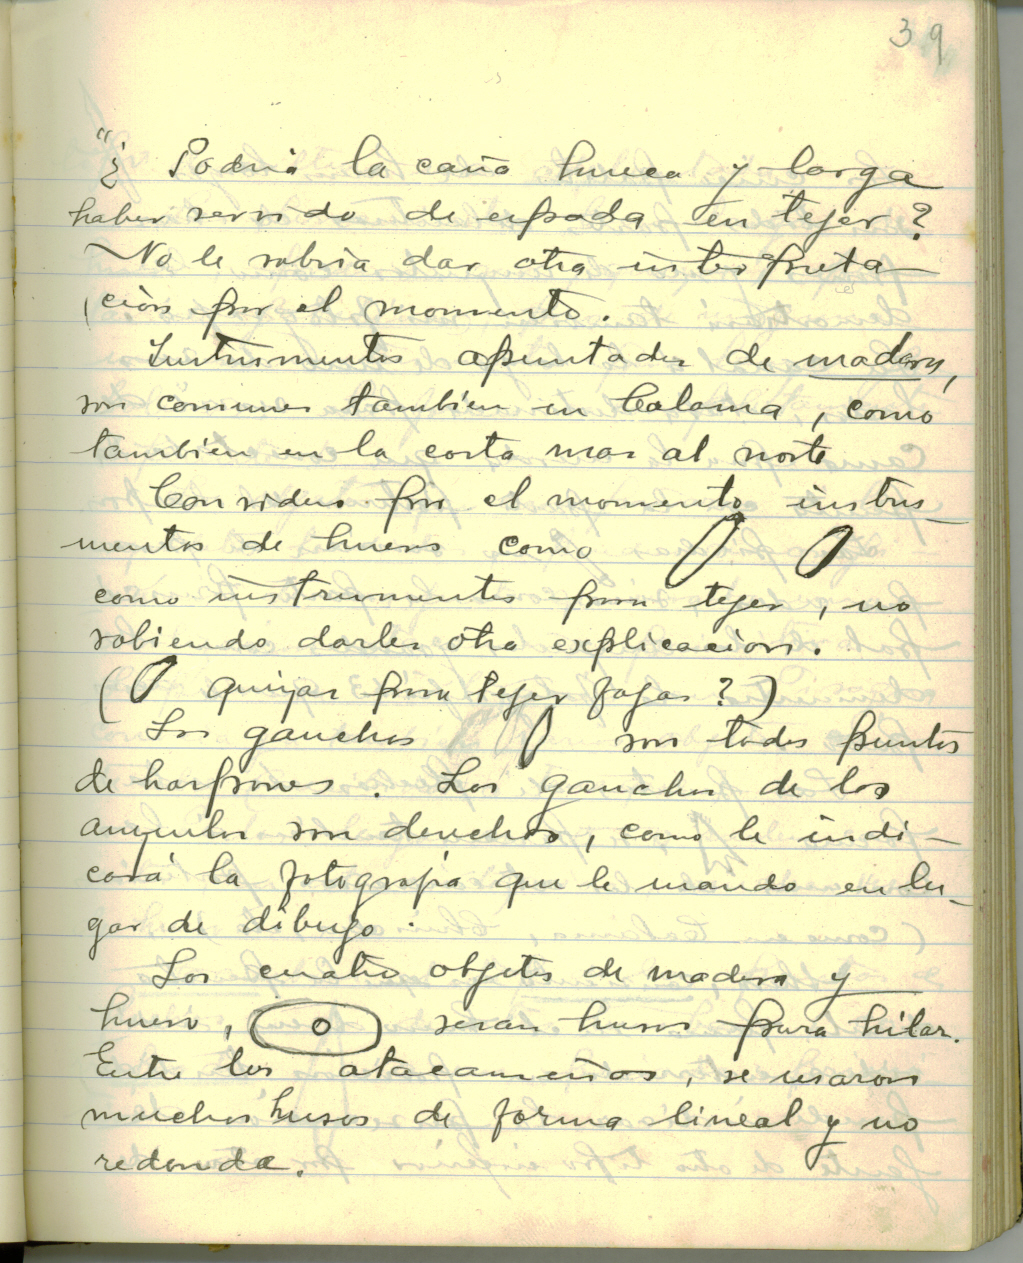 39
"¿ Podria la caña hueca y larga
haber servido de espada en tejer?
No le sabria dar otra interpreta-
ción por el momento.
Instrumentos apuntados de madera,
son comunes tambien en Calama, como
también en la costa mas al norte
Considero por el momento instru-
mentos de hueso como
como instrumentos para tejer, no
sabiendo darles otra explicacion.
( quizas para tejer fajas?)
Los ganchos son todos puntas
de harpones. Los ganchos de los
anzuelos son derechos, como le indi-
cará la fotografia que le mando en lu-
gar de dibujo.
Los cuatro objetos de madera y
hueso, seran husos para hilar.
Entre los atacameños, se usaron
muchos husos de forma lineal y no
redonda.